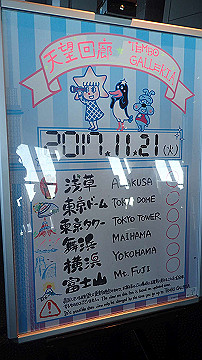 天望回廊 TEMBO GALLERIA
2017.11.21(火)
浅草 ASAKUSA
東京ドーム TOKYO DOME
東京タワー TOKYO TOWER
舞浜 MAIHAMA
横浜 YOKOHAMA
富士山 Mt. FUJI